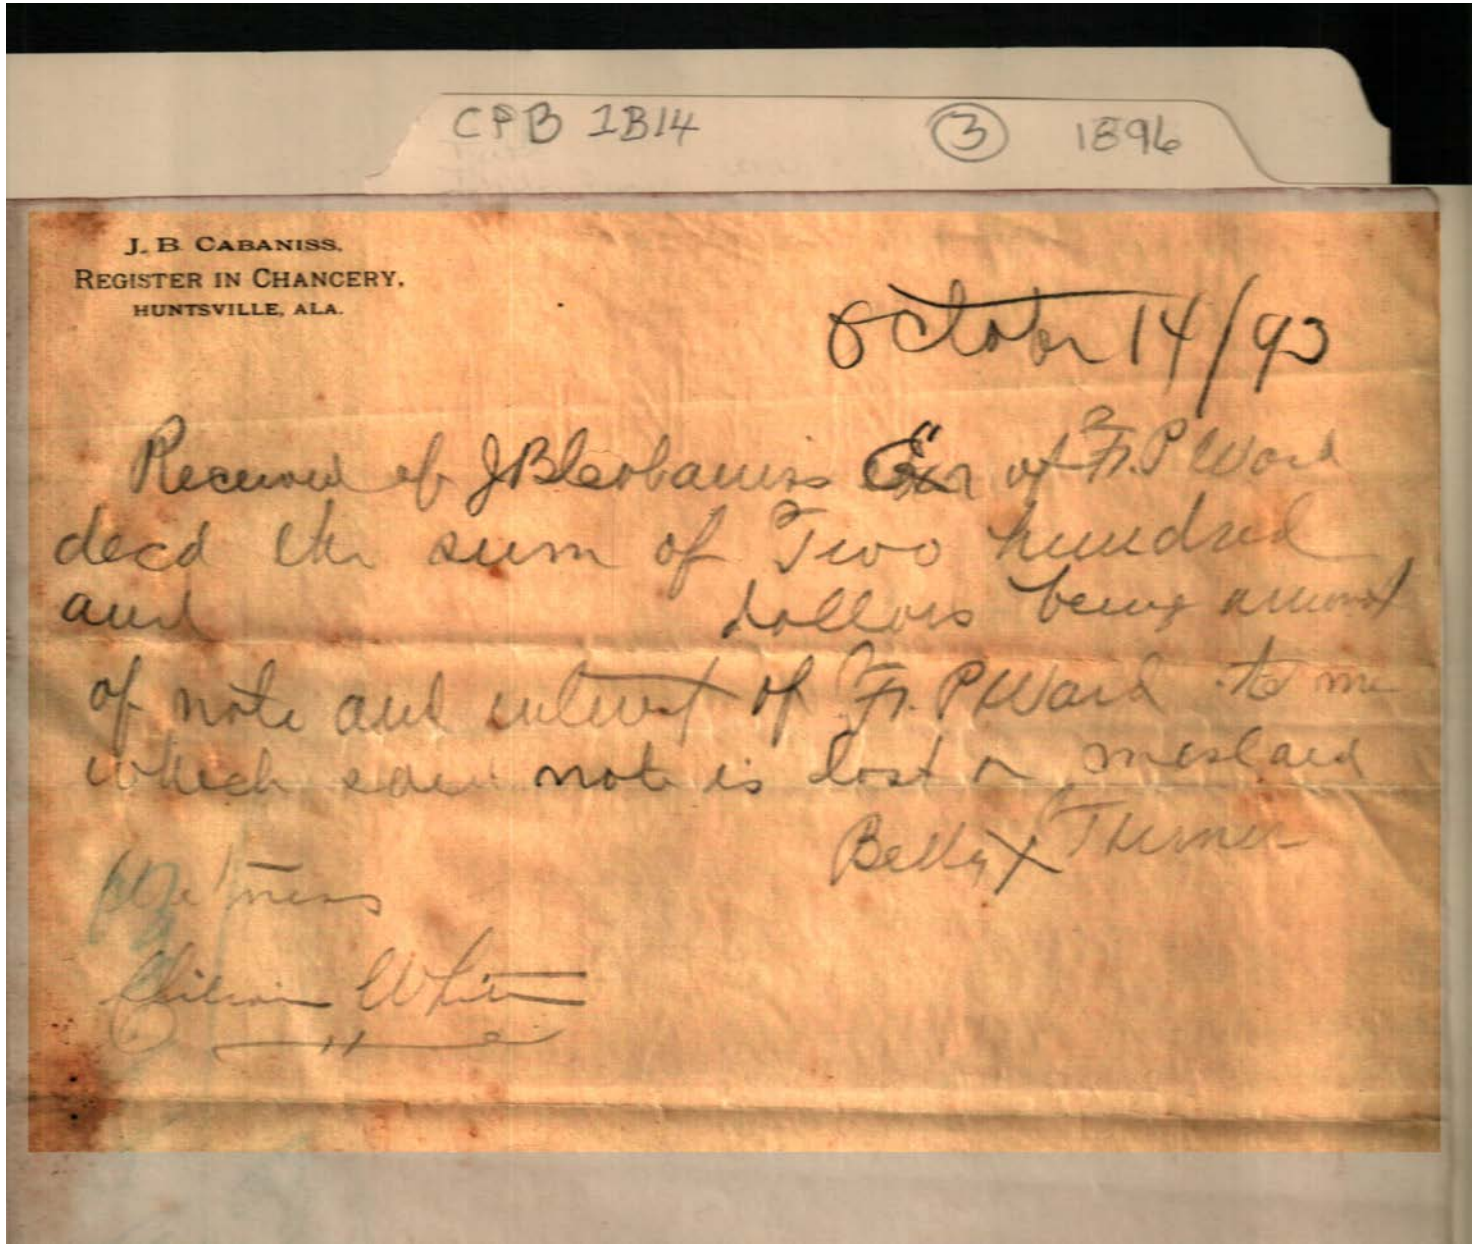 CPB 1B14 3 1896
J. B. CABANISS,
REGISTER IN CHANCERY,
HUNTSVILLE, ALA.
October 14/93
Received of J B Cabaniss Exr of Fr. P Ward
decd the sum of Two hundred
and dollars being amount
of note and interest of Fr. P Ward to me
which said note is lost or mislaid
Betty X Thurner
Witness
White